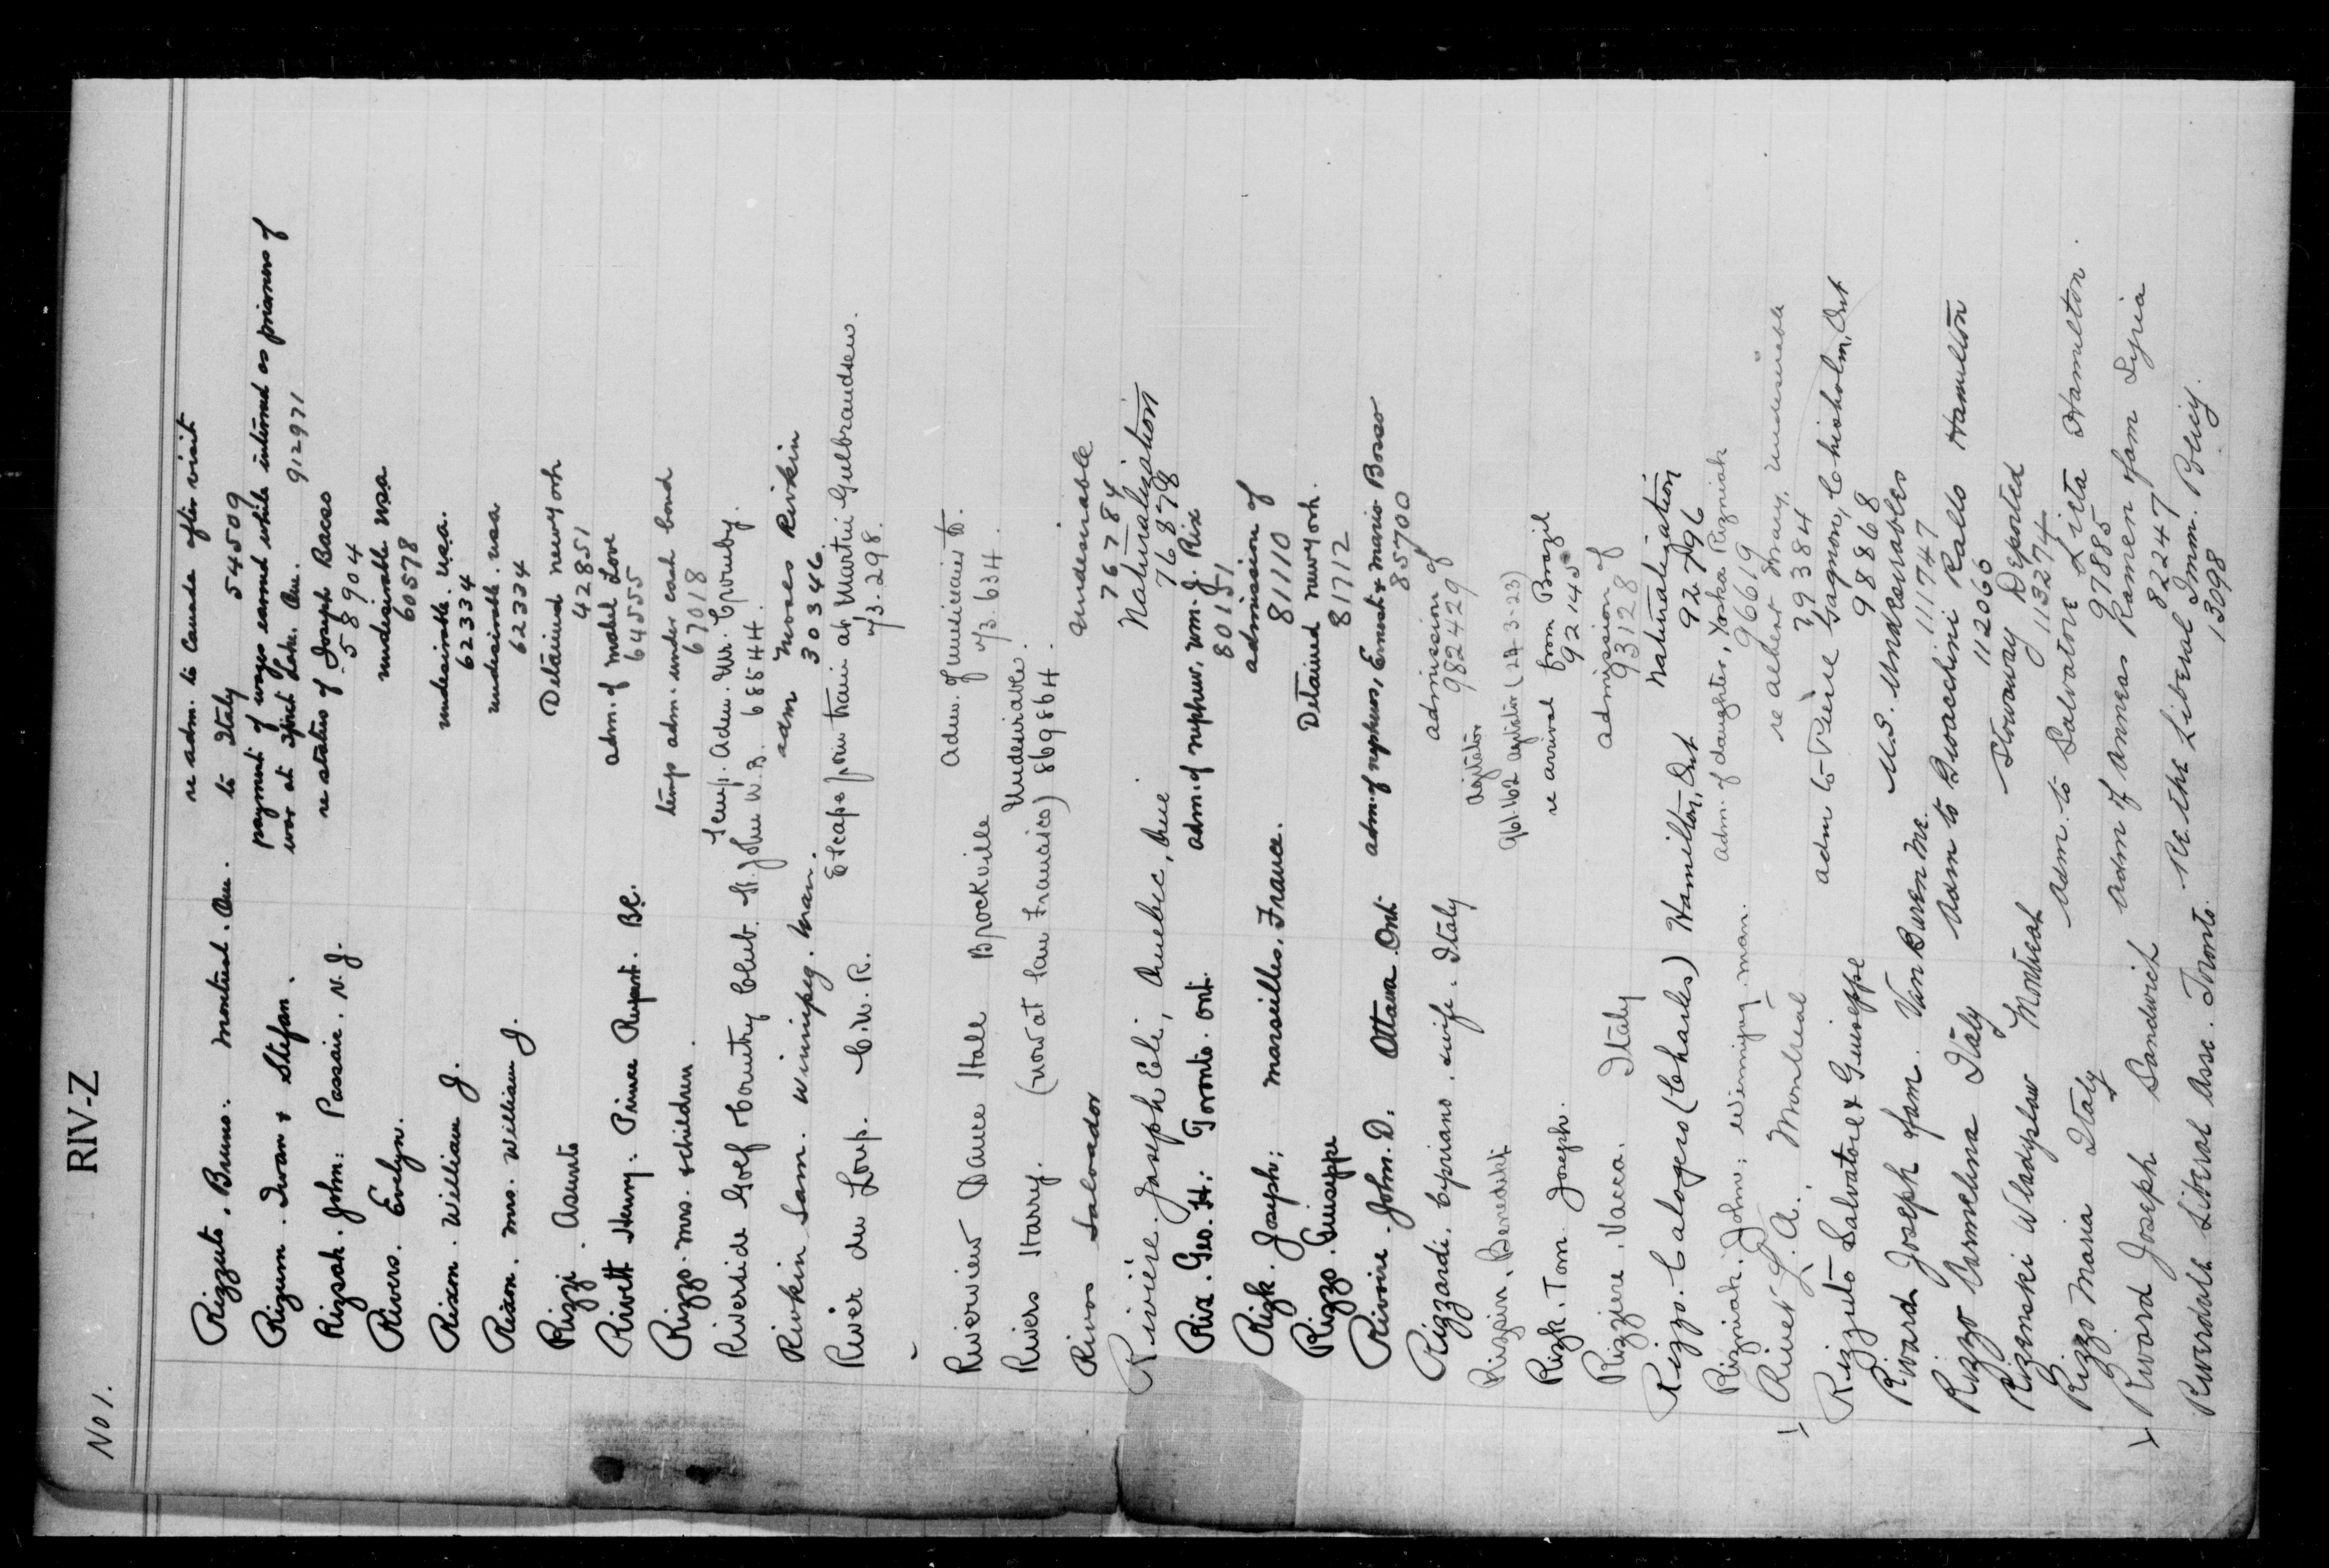 No 1.
RIV-Z
Rizzuto, Bruno. Montreal. Que. re adm. to Canada after visit
to Italy 54509
Rizum. Ivan & Stefan. payment of wages earned while interned as prisoners of
war at Spirit Lake. Que. 912971
Rizsak. John: Passaic. N.J. re status of Joseph Bacso
58904
Rivers. Evelyn. undesirable USA
60578
Rixon. William J. undesirable. USA.
62334
Rixon. Mrs. William J. undesirable. USA
62334
Rizzi. Asunto Detained New York
42851
Rivett Henry. Prince Rupert. B.C. adm. of Mabel Love
64555
Rizzo. Mrs. & children. temp adm. under cash bond
67018
Riverside Golf & Country Club. St. John N.B. Temp. Adm. Mr. Crumby.
68544.
Rivkin Sam. Winnipeg. Man. adm Moses Rivkin
30346
River du Loup. C.N.R. Escape from train at Martin Gulbrandsen.
1/3-298.
Riverview Dance Hall Brockville Adm. of musicians to.
1/3. 634.
Rivers Harry. (now at San Francisco) Undesirable.
869864.
Rivos Salvador Undesirable
76784
Rivière. Joseph Eli, Quebec, Que. Naturalization
76878
Rix. Geo. H: Toronto. Ont. adm. of nephew, Wm. J. Rix
80151
Rizk. Joseph: Marseilles. France. admission of
81110
Rizzo. Guiseppe Detained New York.
81712
Rivoire. John. D. Ottawa. Ont. adm. of nephews, Ernest & Mario Bosso
85700
Rizzardi. Cypriano. wife. Italy admission of
982429
Benedikt agitator
961162 agitator (24-3-23)
Rizk. Tom. Joseph. re arrival from Brazil
92145
Rizziere. Vacca. Italy admission of
93128
Rizzo. Calogero (Charles) Hamilton, Ont Naturalization
92796
Rizniak. John; Winnipeg. Man. adm. of daughter, Yoska Rizniak
96619
Rivet L. A. Montreal re Albert Mary, undesirable
79384
Rizzuto Salvatore & Guiseppe adm to Pierre Gagnon, Chisholm, Ont
98868
Rivard Joseph & fam. Van Buren Me. U.S. Undesirables
111747
Rizzo Carmelina Italy adm to Gioacchini Rallo Hamilton
112066
Rizenski Wladyslaw Montreal Stowaway Deported
113274
Rizzo Maria Italy adm. to Salvatore Hamilton.
97885
Rivard Joseph Sandwich adm of Anneas Ramen & fam Syria
82247
Riverdale Liberal Assc. Toronto. Re the Liberal Imm. Policy.
13098